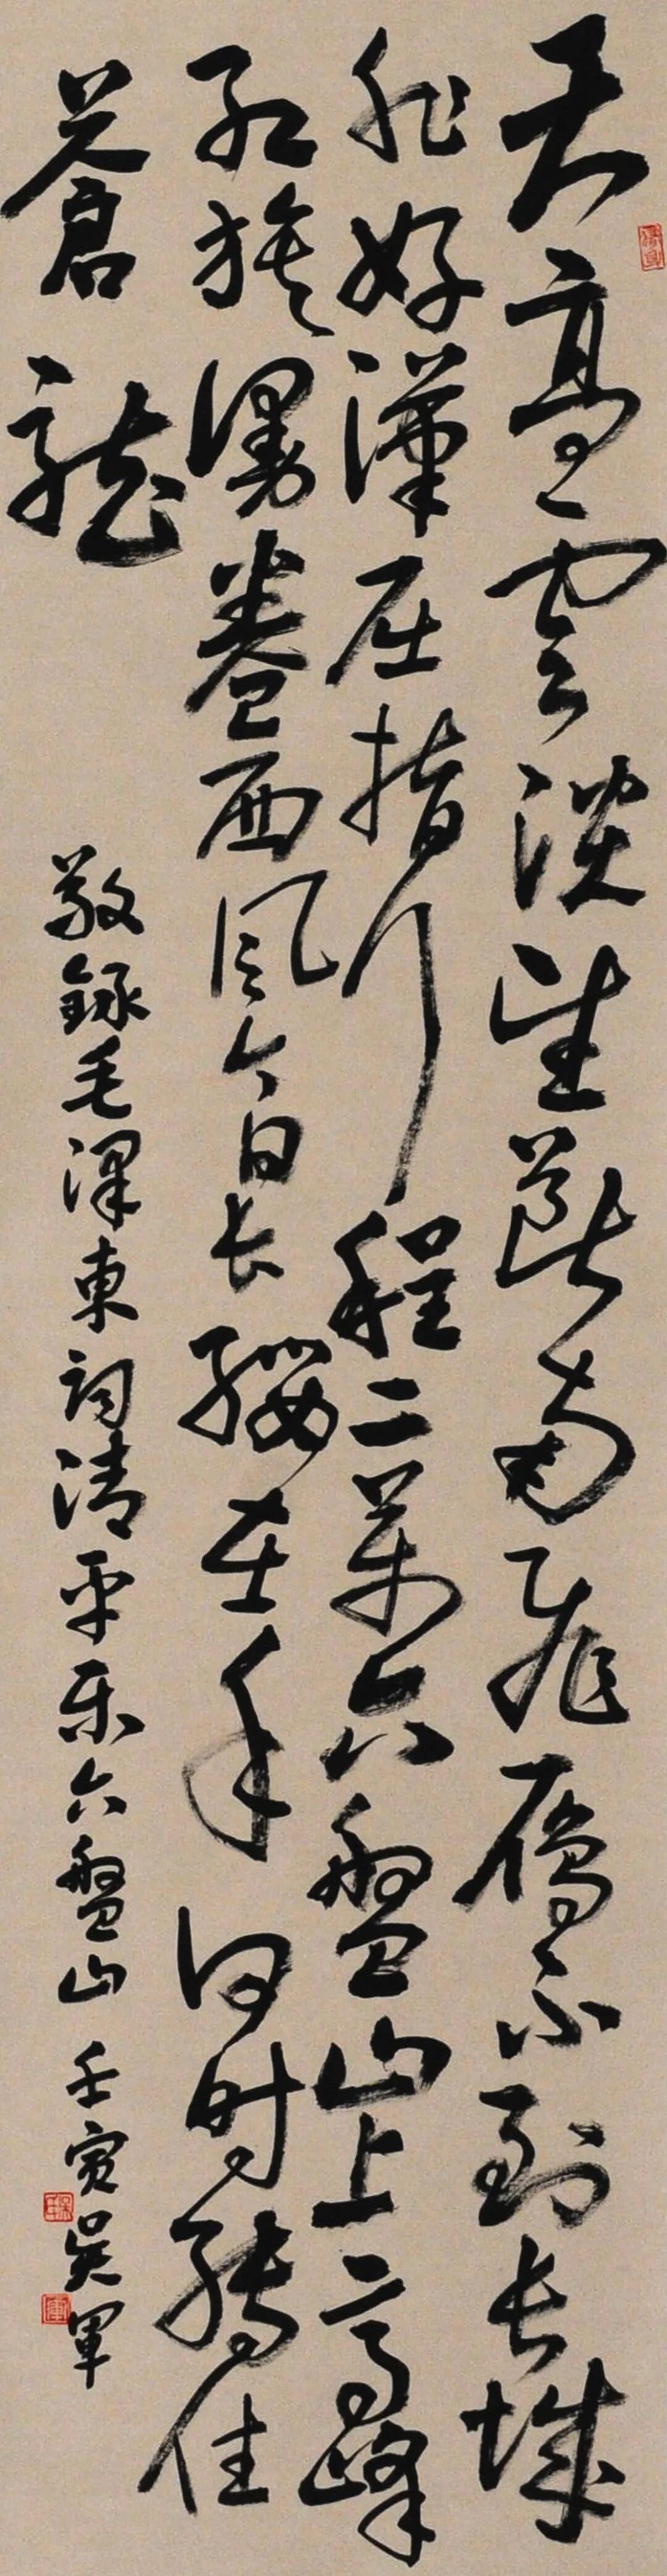 天高雲淡望斷南飛雁不到长城
非好漢屈指行程二萬六盤山上高峰
紅旗漫卷西风今日长纓在手何时縛住
蒼龍
敬録毛澤東詞清平乐六盤山 壬寅 吳軍